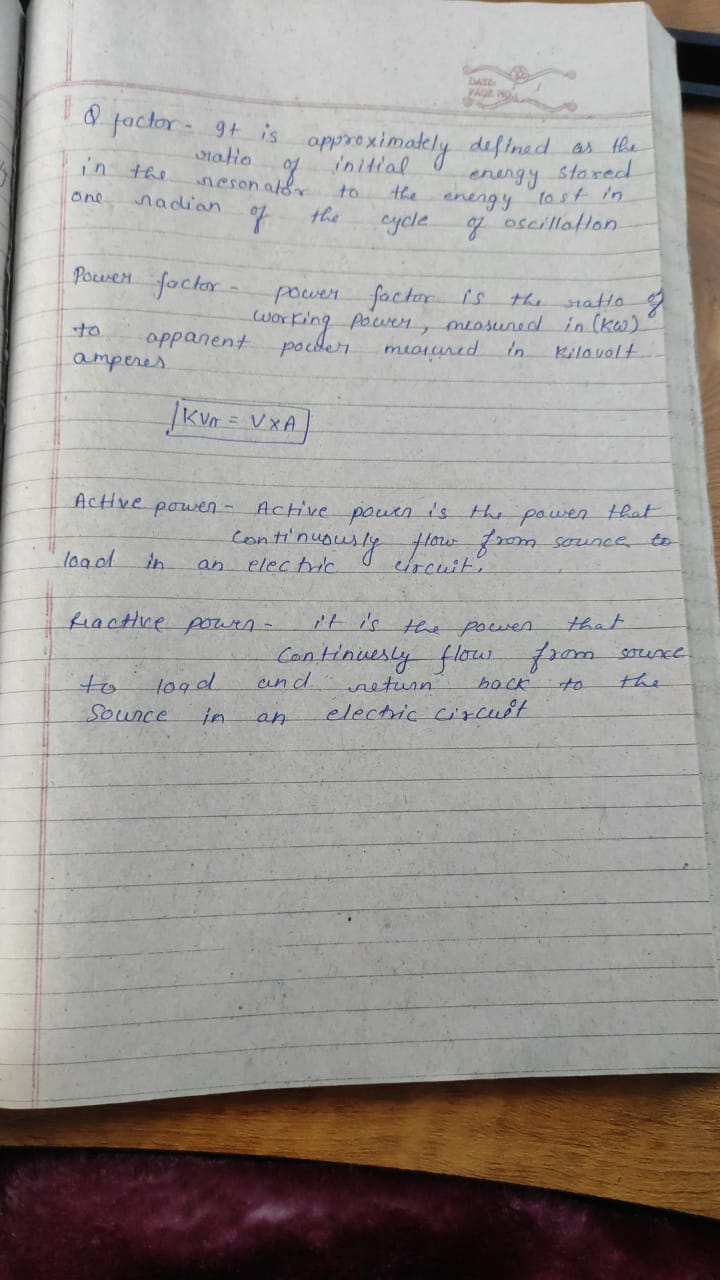 DATE:
PAGE NO.:
Q factor - It is approximately defined as the
ratio of initial energy stored
in the resonator to the energy lost in
one radian of the cycle of oscillation
Power factor - power factor is the ratio of
working power, measured in (kw)
to apparent power measured in kilovolt
amperes
KVA = V x A
Active power - Active power is the power that
continuously flow from source to
load in an electric circuit.
Reactive power - it is the power that
Continuesly flow from source
to load and return back to the
Source in an electric circuit